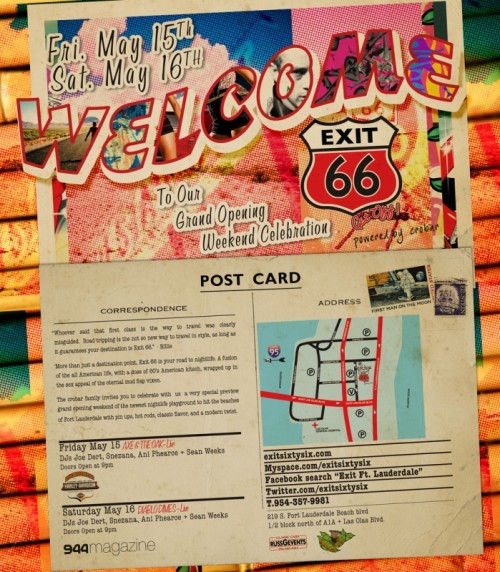 Fri. May 15th
Sat. May 16TH
WELCOME
EXIT
66
To Our
Grand Opening
Weekend Celebration
powered by crobar
POST CARD
CORRESPONDENCE
ADDRESS
FIRST MAN ON THE MOON
"Whoever said that first class is the way to travel was clearly
misguided. Road tripping is the hot as new way to travel in style, as long as
it guarantees your destination is Exit 66."
More than just a destination point, Exit 66 is your road to nightlife. A fusion
of the all American life, with a dose of 60's American kitsch, wrapped up in
the sex appeal of the eternal mud flap vixen.
The crobar family invites you to celebrate with us a very special preview
grand opening weekend of the newest nightlife playground to hit the beaches
of Fort Lauderdale with pin ups, hot rods, classic flavor, and a modern twist.
95
P
P
P
P
P
Friday May 15
DJs Joe Dert, Snezana, Ani Phearce + Sean Weeks
Doors Open at 9pm
Saturday May 16 DIABLO DIMES - Live
DJs Joe Dert, Snezana, Ani Phearce + Sean Weeks
Doors Open at 9pm
944magazine
exitsixtysix.com
Myspace.com/exitsixtysix
Facebook search "Exit Ft. Lauderdale"
Twitter.com/exitsixtysix
T.954-357-9981
219 S. Fort Lauderdale Beach blvd.
1/2 block north of A1A + Las Olas Blvd.
RUSSGEVENTS